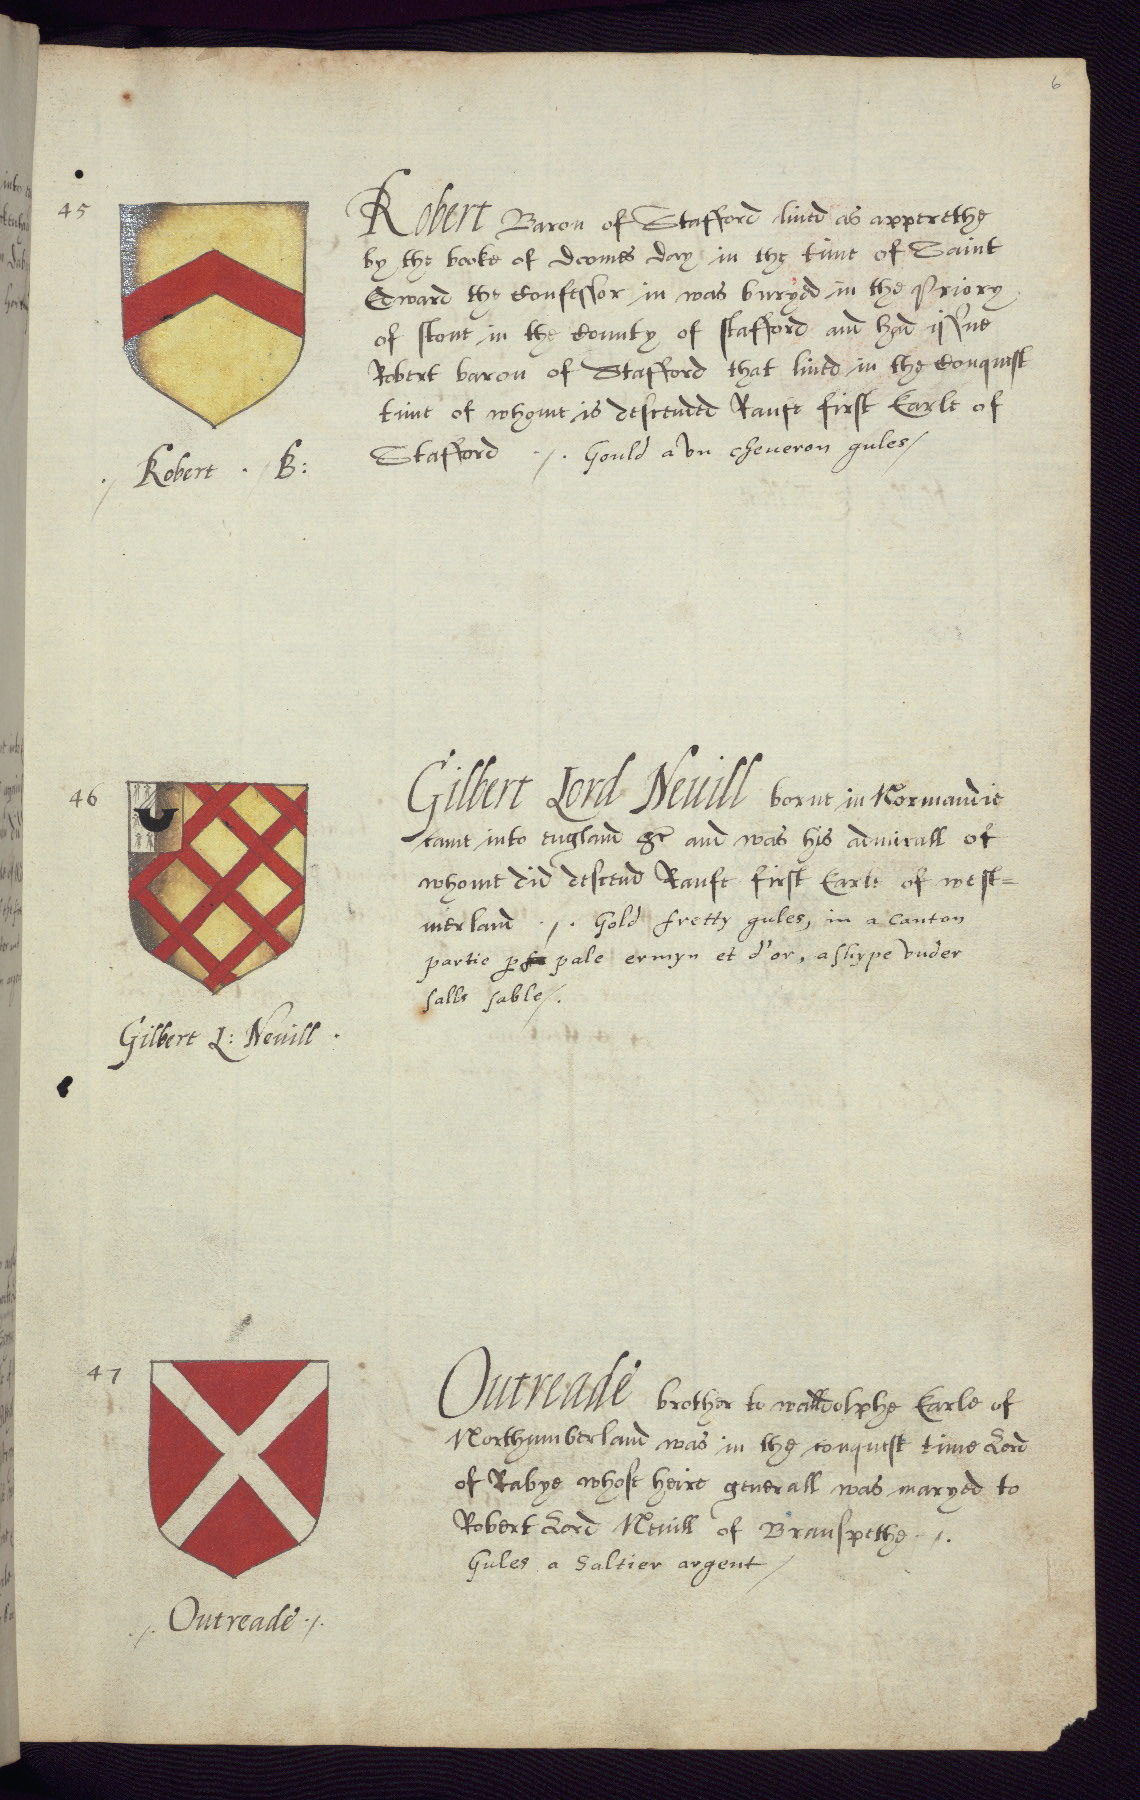 6
45
Robert Baron of Stafford lived as apperethe
by the booke of doomes day in the time of Saint
Edward the Confessor in was buryed in the Priory
of stone in the County of stafford and had issue
Robert baron of Stafford that lived in the Conquest
time of whome is descended Raufe first Earle of
Stafford ./. Gould a vn cheueron gules/
./ Robert . / B:
46
Gilbert Lord Neuill borne in Normandie
came into england &c and was his admirall of
whome did descend Raufe first Earle of west=
merland ./. Gold fretty gules, in a Canton
partie p pale ermyn et d'or, a shype vnder
salls sable/.
Gilbert L: Neuill .
47
Outreade brother to walldolphe Earle of
Northumberland was in the conquest time Lord
of Rabye whose heire generall was maryed to
Robert Lord Neuill of Branspethe ./.
Gules a Saltier argent/
./. Outreade ./.